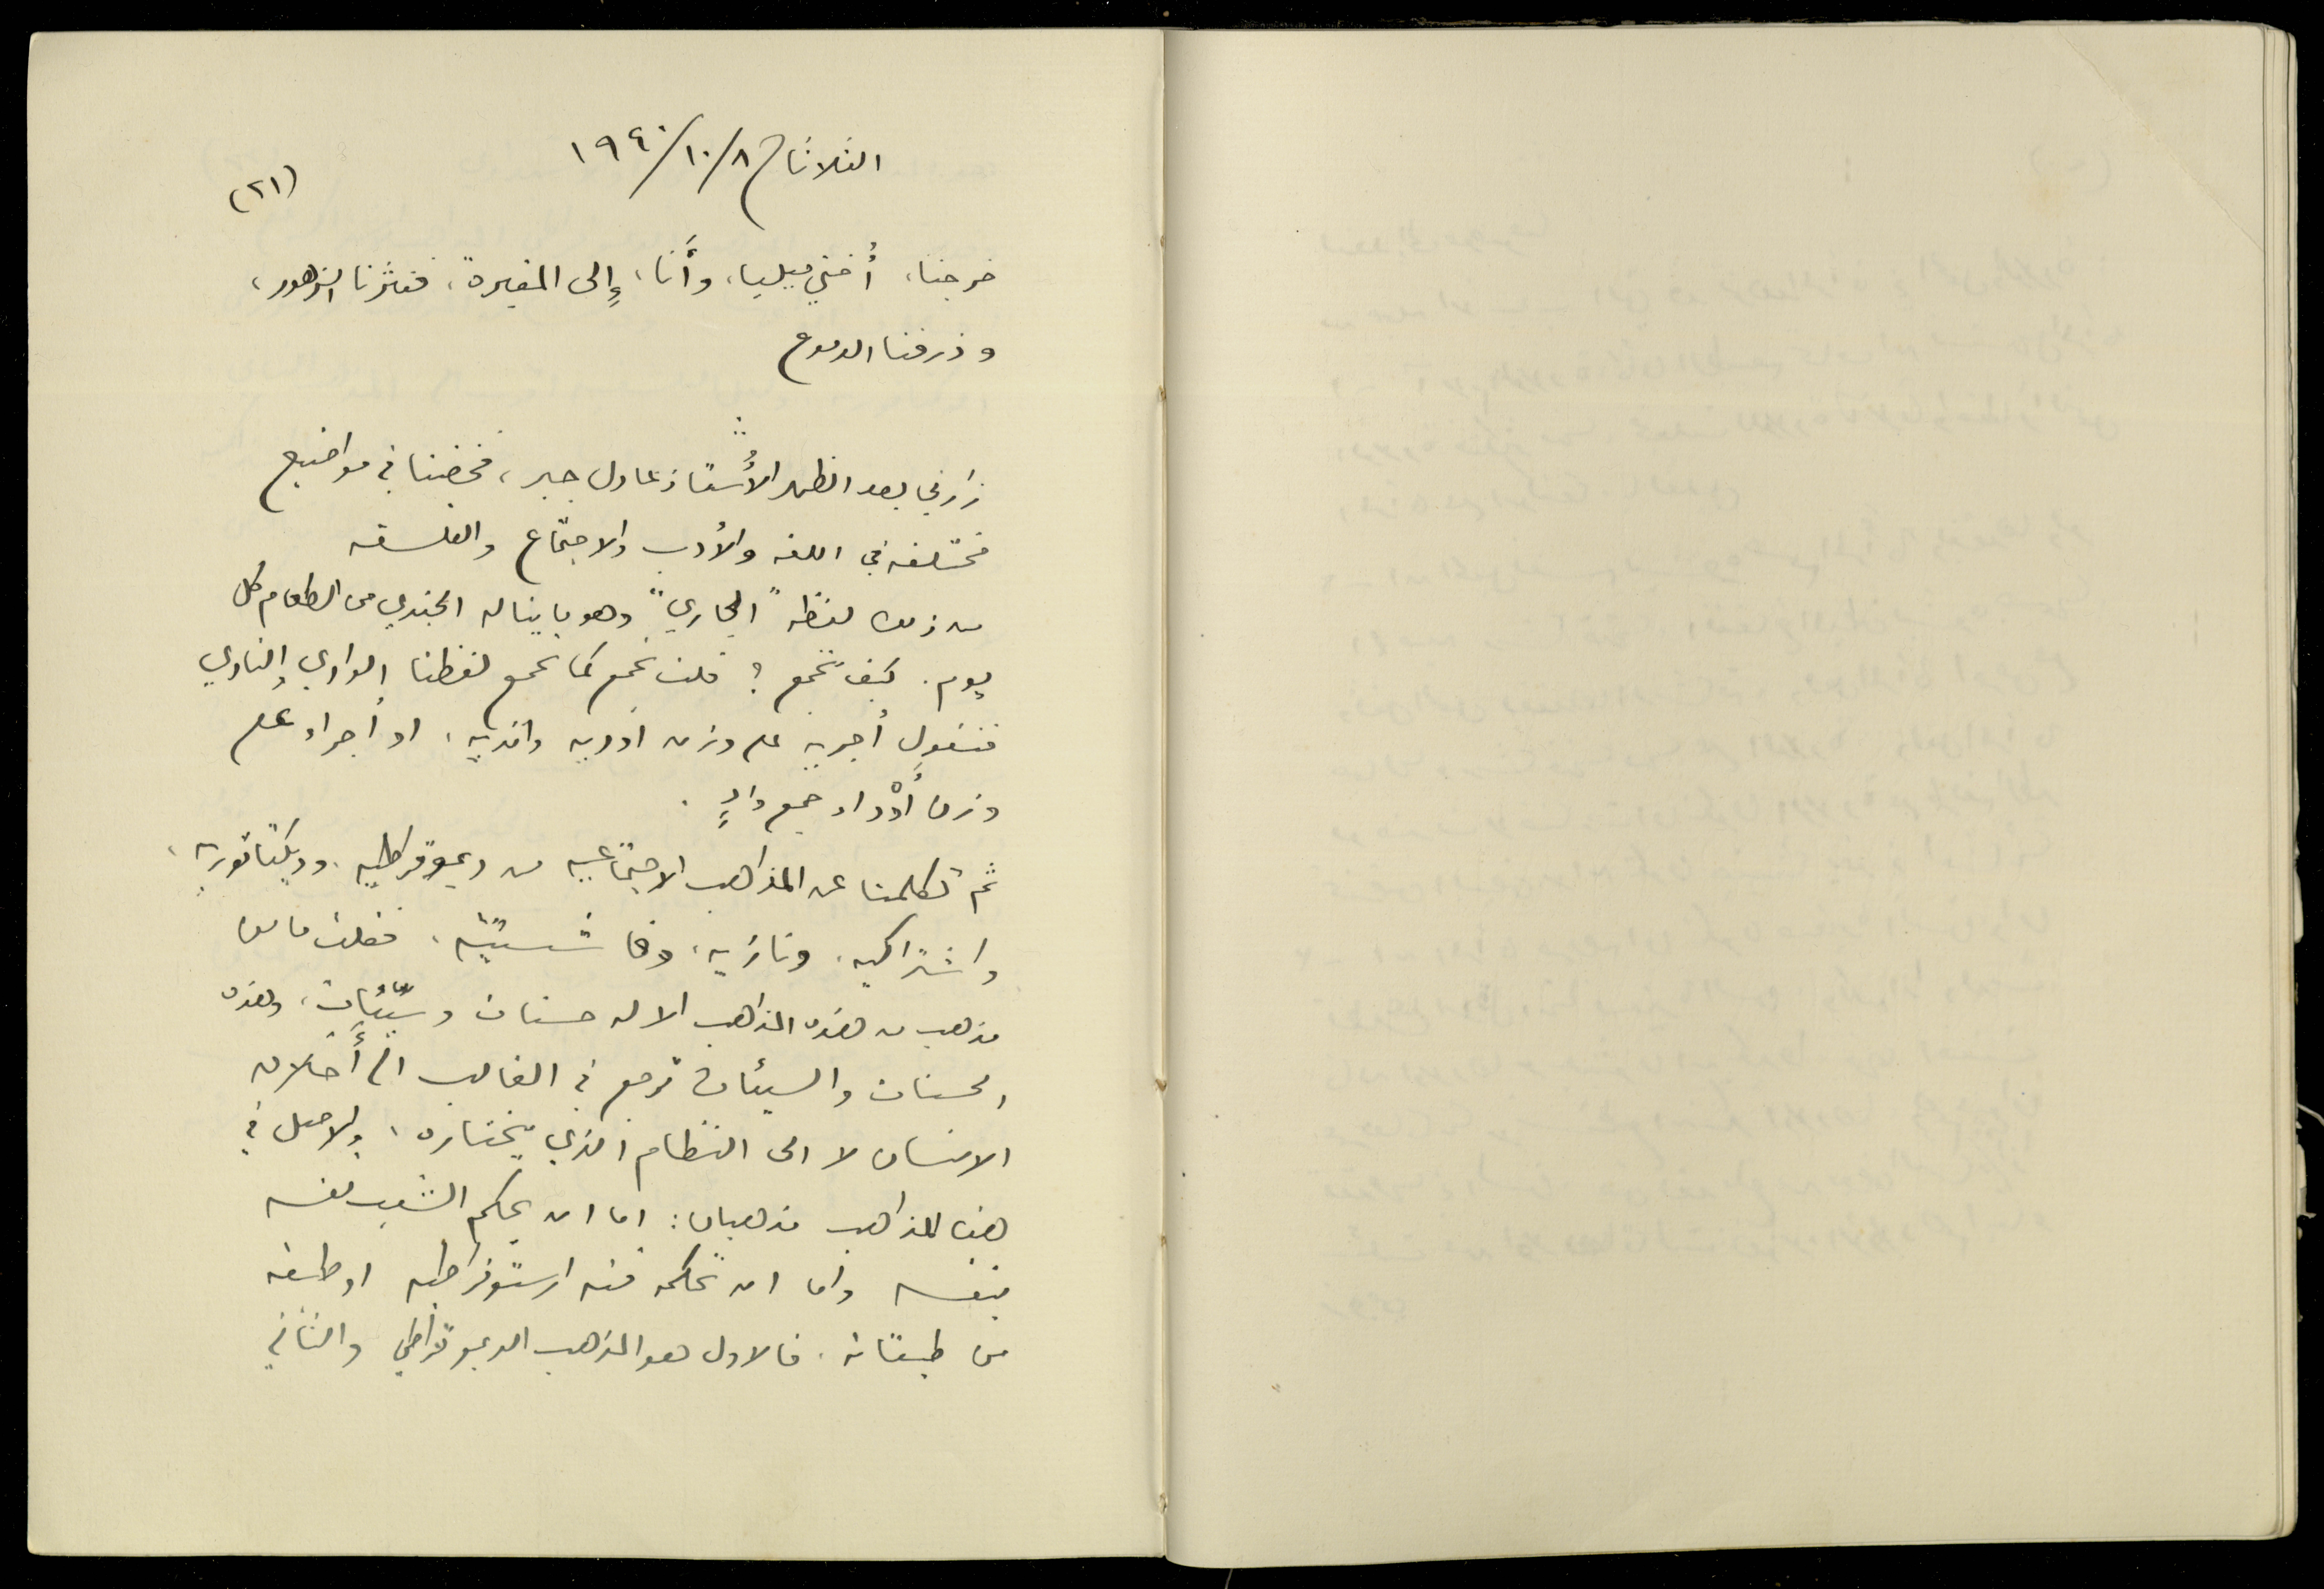 الثلاثاء ٨/١٠/١٩٤٠
(٢١)
خرجنا، أُختي ميليا، وأَنا، إِلى المقبرة، فنثرنا الزهور،
وذرفنا الدموع
زارني بعد الظهر الأُستاذ عادل جبر، فخضنا في مواضيع
مختلفه في اللغه والأدب والاجتماع والفلسفه
من ذلك لفظه "الجاري" وهو ما يناله الجندي من الطعام كل
يوم. كيف تجمع؟ قلت تجمع كما تجمع لفظتا الوادي والنادي
فنقول أجريه على وزن اوديه وانديه، او أجراء على
وزن أوْداء جمع وادٍ.
ثم تكلمنا عن المذاهب الاجتماعيه من ديموقراطيه، وديكتاتوريه،
واشتراكيه، ونازيه، وفاشستيّه، فقلت ما من
مذهب من هذه المذاهب الا له حسنات وسيّئات، وهذه
الحسنات والسيئات ترجع في الغالب الى أَخلاق
الانسان لا الى النظام الذي يختاره، والاصل في
هذه المذاهب مذهبان: اما ان يحكم الشعب نفسه
بنفسه واما ان تحكمه فئه ارستوقراطيه او طبقه
من طبقاته. فالاول هو المذهب الديموقراطي والثاني